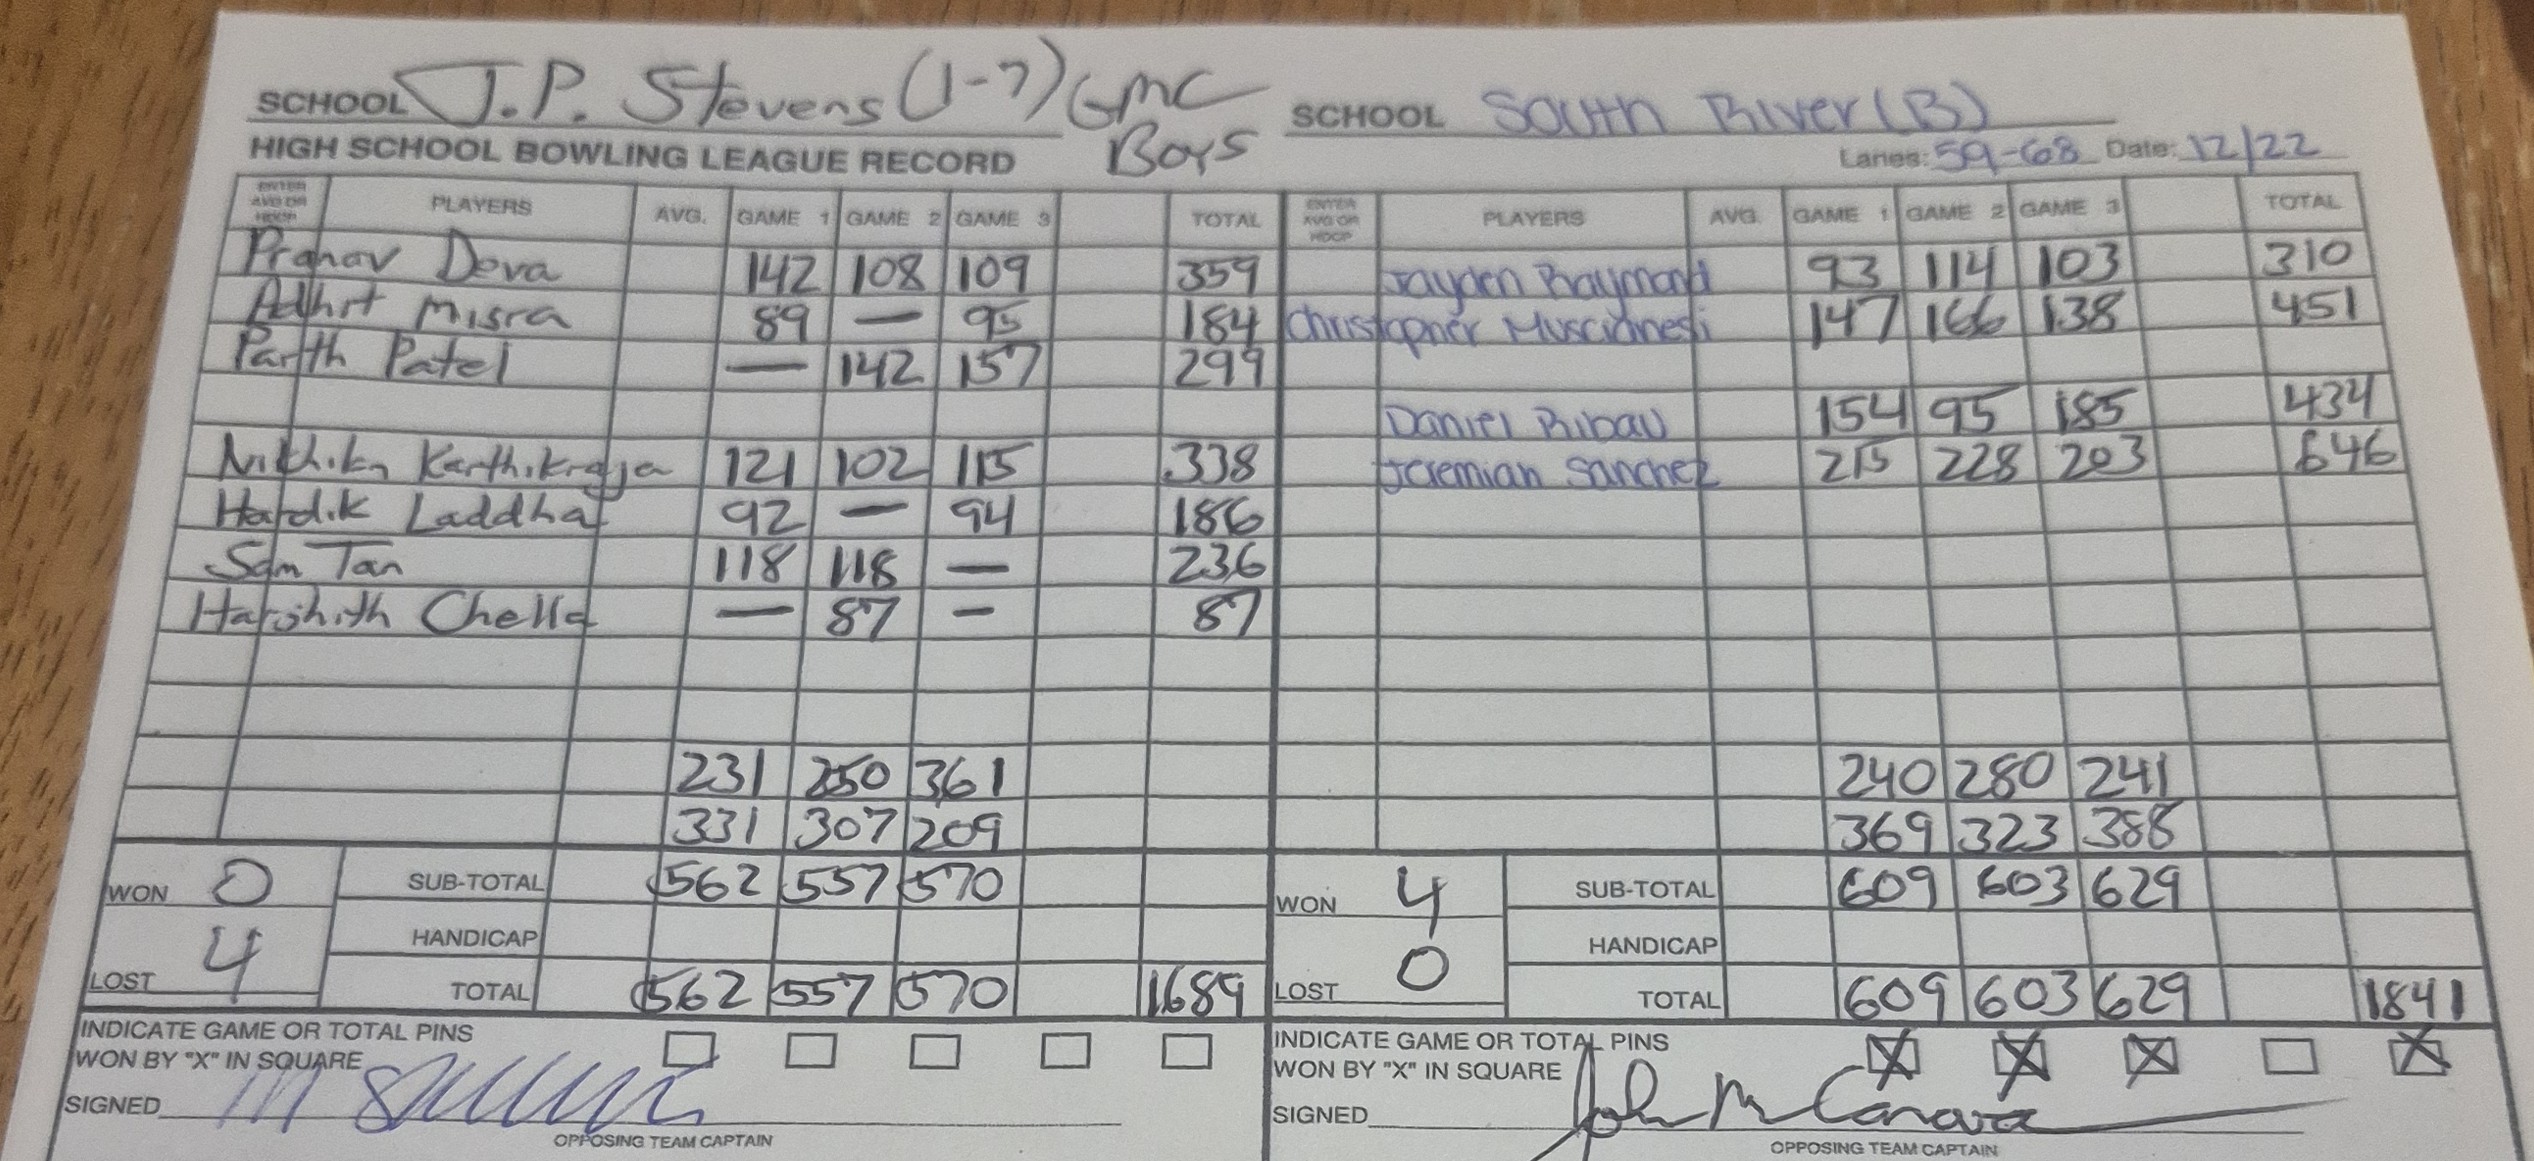 SCHOOL J.P. Stevens (1-7) GMC Boys SCHOOL South River (B)
HIGH SCHOOL BOWLING LEAGUE RECORD Lanes: 59-68 Date: 12/22
ENTER AVG OR HDCP PLAYERS AVG. GAME 1 GAME 2 GAME 3 TOTAL ENTER AVG OR HDCP PLAYERS AVG. GAME 1 GAME 2 GAME 3 TOTAL
Pranav Deva 142 108 109 359 Jayden Raymond 93 114 103 310
Adhrit Misra 89 — 95 184 Christopher Muscianesi 147 166 138 451
Parth Patel — 142 157 299
Daniel Ribau 154 95 185 434
Nithikn Karthikraja 121 102 115 338 Jeremiah Sanchez 215 228 203 646
Hardik Laddha 92 — 94 186
Sam Tan 118 118 — 236
Harshith Chella — 87 — 87
231 250 361 240 280 241
331 307 209 369 323 388
WON 0 SUB-TOTAL 562 557 570 WON 4 SUB-TOTAL 609 603 629
HANDICAP HANDICAP
LOST 4 TOTAL 562 557 570 1689 LOST 0 TOTAL 609 603 629 1841
INDICATE GAME OR TOTAL PINS INDICATE GAME OR TOTAL PINS
WON BY "X" IN SQUARE WON BY "X" IN SQUARE X X X X
SIGNED SIGNED John M Canova
OPPOSING TEAM CAPTAIN OPPOSING TEAM CAPTAIN